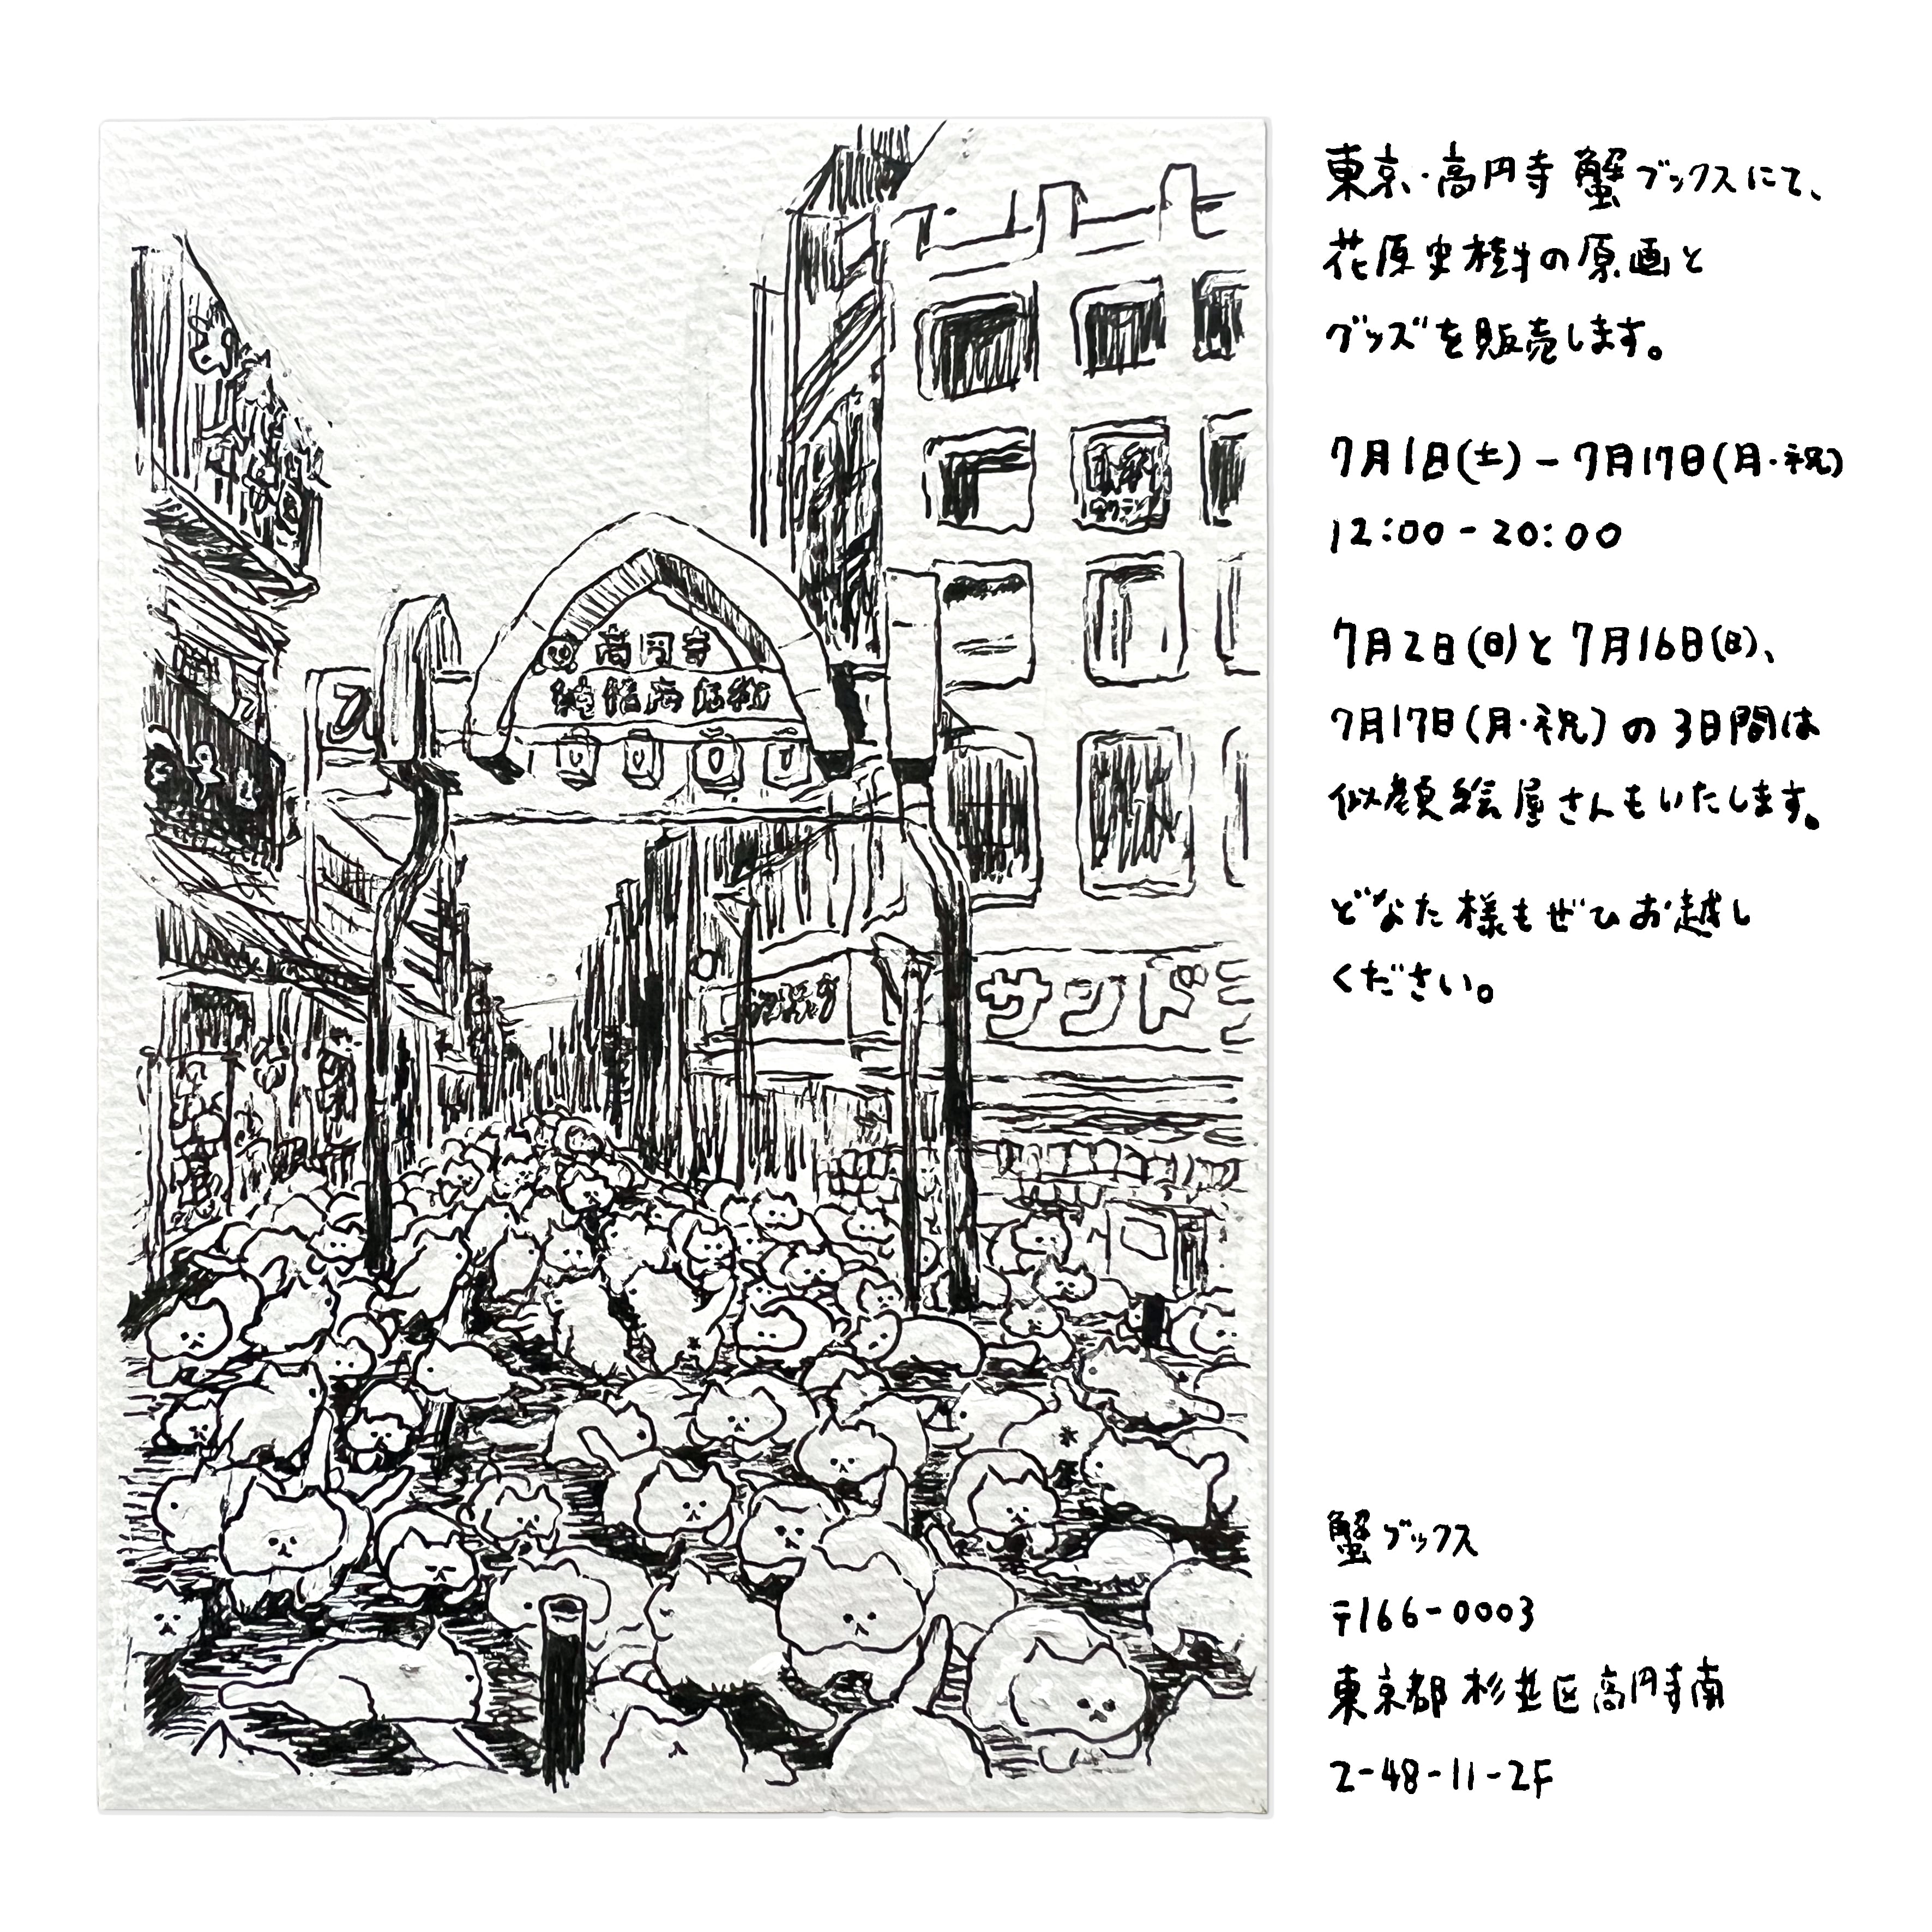 東京・高円寺 蟹ブックスにて、
花原史樹の原画と
グッズを販売します。
7月1日(土)-7月17日(月・祝)
12:00-20:00
7月2日(日)と7月16日(日)、
7月17日(月・祝)の3日間は
似顔絵屋さんもいたします。
どなた様もぜひお越し
ください。
高円寺
純情商店街
サンド
蟹ブックス
〒166-0003
東京都杉並区高円寺南
2-48-11-2F